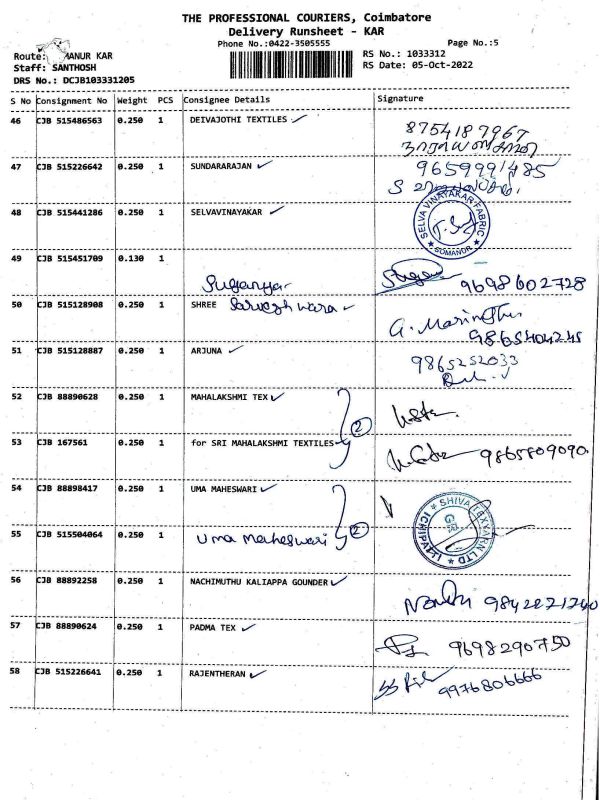 THE PROFESSIONAL COURIERS, Coimbatore
Delivery Runsheet - KAR
Phone No.:0422-3505555 Page No.:5
Route: MANUR KAR RS No.: 1033312
Staff: SANTHOSH RS Date: 05-Oct-2022
DRS No.: DCJB103331205
S No Consignment No Weight PCS Consignee Details Signature
46 CJB 515486563 0.250 1 DEIVAJOTHI TEXTILES ✓
8754187967
47 CJB 515226642 0.250 1 SUNDARARAJAN ✓ 9659991485
48 CJB 515441286 0.250 1 SELVAVINAYAKAR ✓ SELVA VINAYAKAR FABRIC
* SOMANUR *
49 CJB 515451709 0.130 1
Suganya 9698602728
50 CJB 515128908 0.250 1 SHREE Sarveshwara ✓
9865404245
51 CJB 515128887 0.250 1 ARJUNA ✓ 9865252033
52 CJB 88890628 0.250 1 MAHALAKSHMI TEX ✓
2
53 CJB 167561 0.250 1 for SRI MAHALAKSHMI TEXTILES 9865809090
54 CJB 88898417 0.250 1 UMA MAHESWARI ✓ * SHIVA TEXYARN LTD * ICHIPATTI
55 CJB 515504064 0.250 1 Uma Maheswari 2
56 CJB 88892258 0.250 1 NACHIMUTHU KALIAPPA GOUNDER ✓
9842271740
57 CJB 88890624 0.250 1 PADMA TEX ✓
9698290750
58 CJB 515226641 0.250 1 RAJENTHERAN ✓
9976806666